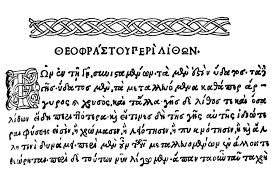 ΘΕΟΦΡΑΣΤΟΥ ΠΕΡΙ ΛΙΘΩΝ.
Τῶν ἐν τῇ γῇ συνισταμένων, τὰ μὲν ἐστιν ὕδατος, τὰ δὲ
γῆς. ὕδατος μὲν, τὰ μεταλλευόμενα καθάπερ ἄρ
γυρος καὶ χρυσὸς, καὶ τἄλλα. γῆς δὲ λίθος τε καὶ ὅσα
λίθων εἴδη περιττότερα. καὶ εἴ τινες δὴ τῆς γῆς αὐτῆς ἰδιώτε
ραι φύσεις εἰσὶν, ἢ χρώμασιν, ἢ λειότησιν, ἢ πυκνότησιν, ἢ καὶ ἄλ
λῃ τινὶ δυνάμει. περὶ μὲν οὖν τῶν μεταλλευομένων ἐν ἄλλοις τε
θεώρηται. περὶ δὲ τούτων νῦν λέγωμεν. ἅπαντα οὖν ταῦτα χρὴ